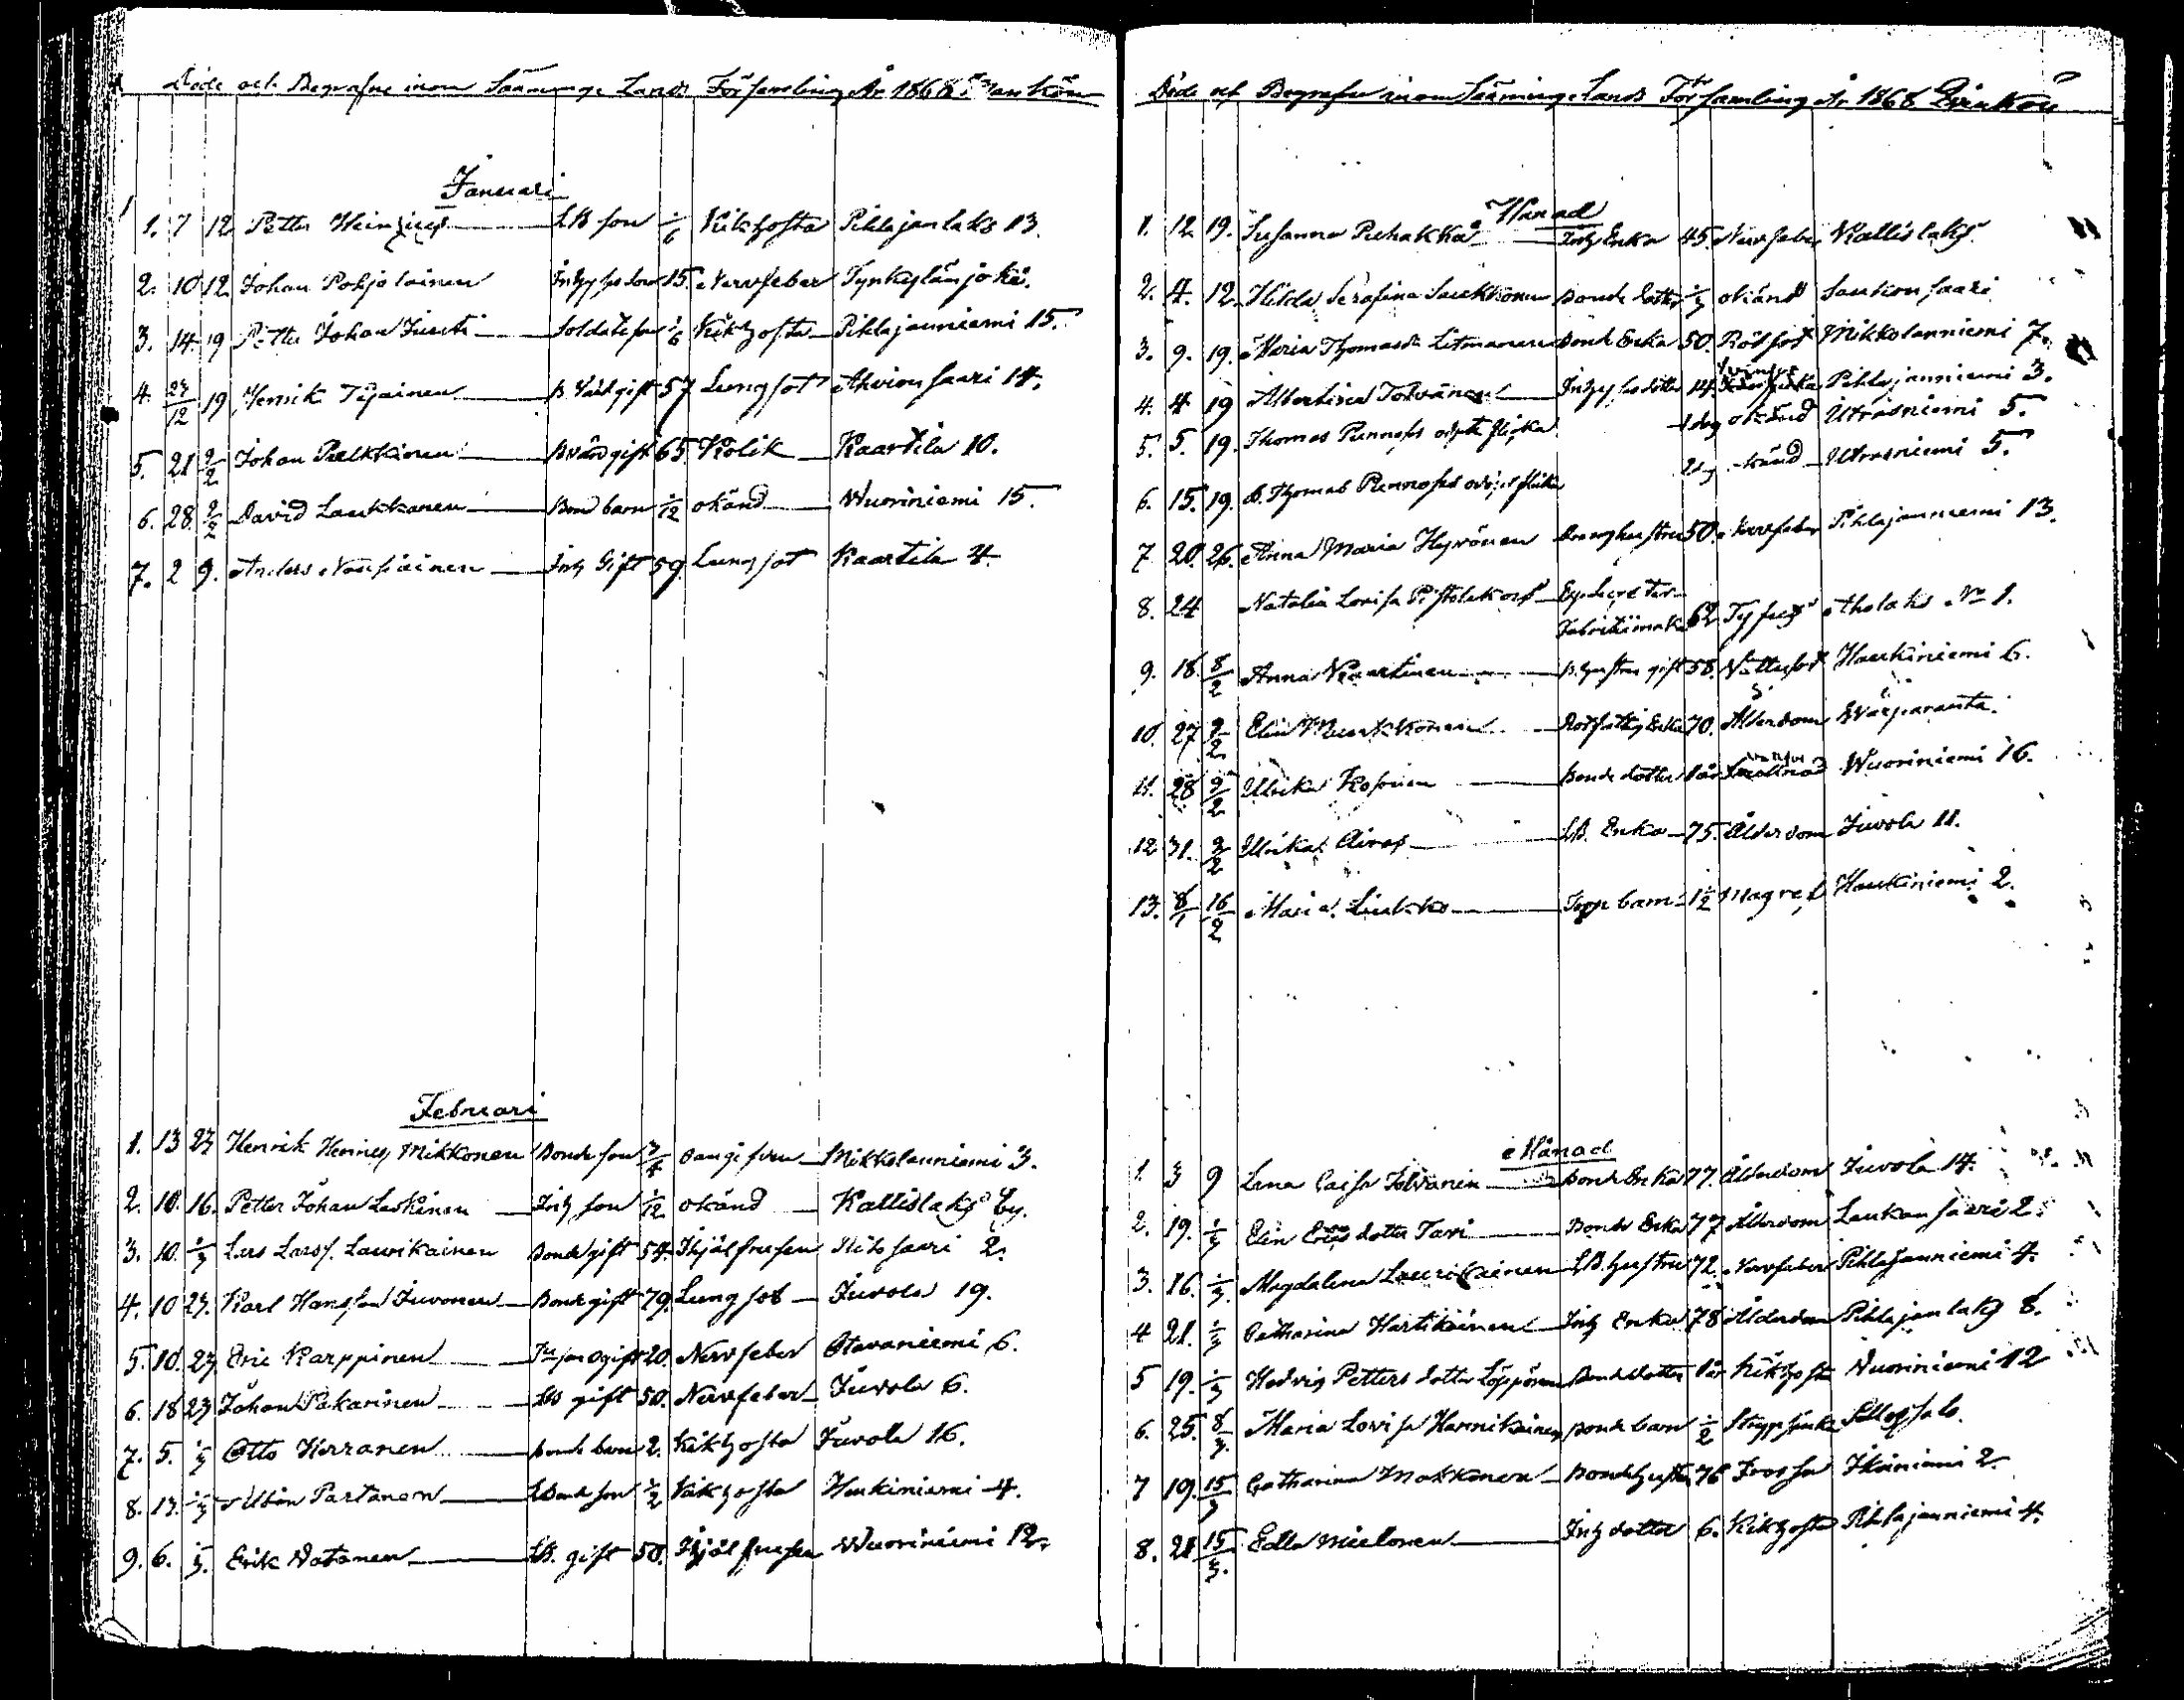 Döde och Begrafne inom Sääminge Lands Församling År 1868. Mankön
Januari
1. 7 12 Petter Heinjus LB son 1/6 Kikhosta Pihlajanlaks 13.
2. 10 12 Johan Pohjolainen Inhys son 15. Nervfeber Tynkylänjoki.
3. 14. 19 Petter Johan Juuti Soldats son 1/6 Kikhosta Pihlajaniemi 15.
4. 27/12 19 Henrik Tijainen B. Värd gift 57 Lungsot Ahvionsaari 14.
5. 21 2/2 Johan Pulkkinen B värd gift 65 Kolik Kaartila 10.
6. 28. 2/2 David Laukkanen Bond barn 1/12 okänd Wuoriniemi 15
7. 2 9. Anders Nousiainen Inh Gift 59. Lungsot Kaartila 4.
Februari
1. 13 23 Henrik Henriks Mikkonen Bonde son 3/4 Mikkolanniemi 3.
2. 10. 16. Petter Johan Leskinen Inh son 1/12 okänd Kallislaks by.
3. 10. 1/3 Lars Larss. Laurikainen Bonde gift 54. Ihjälfrusen saari 2.
4. 10 23. Karl Hansson Juvonen Bonde gift 79. Lungsot Juvola 19.
5. 10. 23 Eric Karppinen ogift 20. Nervfeber Otavaniemi 6.
6. 18 23 Johan Pakarinen LB gift 50. Nervfeber Juvola 6.
7. 5. 1/3 Otto Kerranen Bonde barn 2. Kikhosta Juvola 16.
8. 13. 1/3 Albin Partanen LBonde son 1/2 Kikhosta Haukiniemi 4.
9. 6. 1/3. Erik Natanen LB. gift 50. Ihjälfrusen Wuoriniemi 12.
Döde och Begrafne inom Sääminge Lands Församling År 1868 Qvinkön
Månad
1. 12 19. Susanna Puhakka Inh Enka 45. Nervfeber Kallislaks
2. 4. 12. Hilda Serafina Saukkonen Bonde dotter 1/3 okänd Saukonsaari
3. 9. 19. Maria Thomasdr Litmanen Bonde Enka 50. Rödsot Mikkolanniemi 7.
4. 4 19 Albertina Tolvanen Inhys dotter 14. Pihlajanniemi 3.
5. 5. 19. Thomas Punnoses odöpt flicka 1 dag okänd Utrasniemi 5.
6. 15. 19. d. Thomas Punnoses odöpt flicka 2 dag okänd Utrasniemi 5.
7 20. 26. Anna Maria Hyvönen Drenghustru 50. Nervfeber Pihlajanniemi 13.
8. 24 Natalia Lovisa Pistolekors 62 Tyfus Aholaks No 1.
9. 18 8/2 Anna Kaartinen B. hustru gift 58. Vattusot Haukiniemi 6.
10. 27 2/2 Elin Muukkonen Rotfattig Enka 70. Ålderdom Warparanta.
11. 28 9/2 Ulrika Kosonen Bonde dotter 1 år Wuoriniemi 16.
12 31. 9/2 Ulrika Airas LB. Enka 75. Ålderdom Juvola 11.
13. 8/1 16/2 Maria Liukko Torp barn 1 1/2 Magref Haukiniemi 2.
Månad
1. 3 9 Lena Caisa Tolvanen Bonde Enka 77. Ålderdom Juvola 14.
2. 19. 1/3 Elin Ericsdotter Tavi Bonde Enka 77 Ålderdom Laukansaari 2.
3. 16. 1/3. Magdalena Laurikainen LB. hustru 72. Nervfeber Pihlajanniemi 4.
4 21. 1/3 Catharina Hartikainen Inh Enka 78 Ålderdom Pihlajanlaks 8.
5 19. 1/3 Hedvig Pettersdotter Löppönen Bonde dotter 1 år Kikhosta Wuoriniemi 12
6. 25. 8/3. Maria Lovisa Hannikainen Bonde barn 1/2 Strypsjuka
7 19. 15/3 Catharina Makkonen Bonde hustru 76 Frossa Ikoinniemi 2.
8. 21 15/3. Edla Mielonen Inh dotter 6. Kikhosta Pihlajanniemi 4.